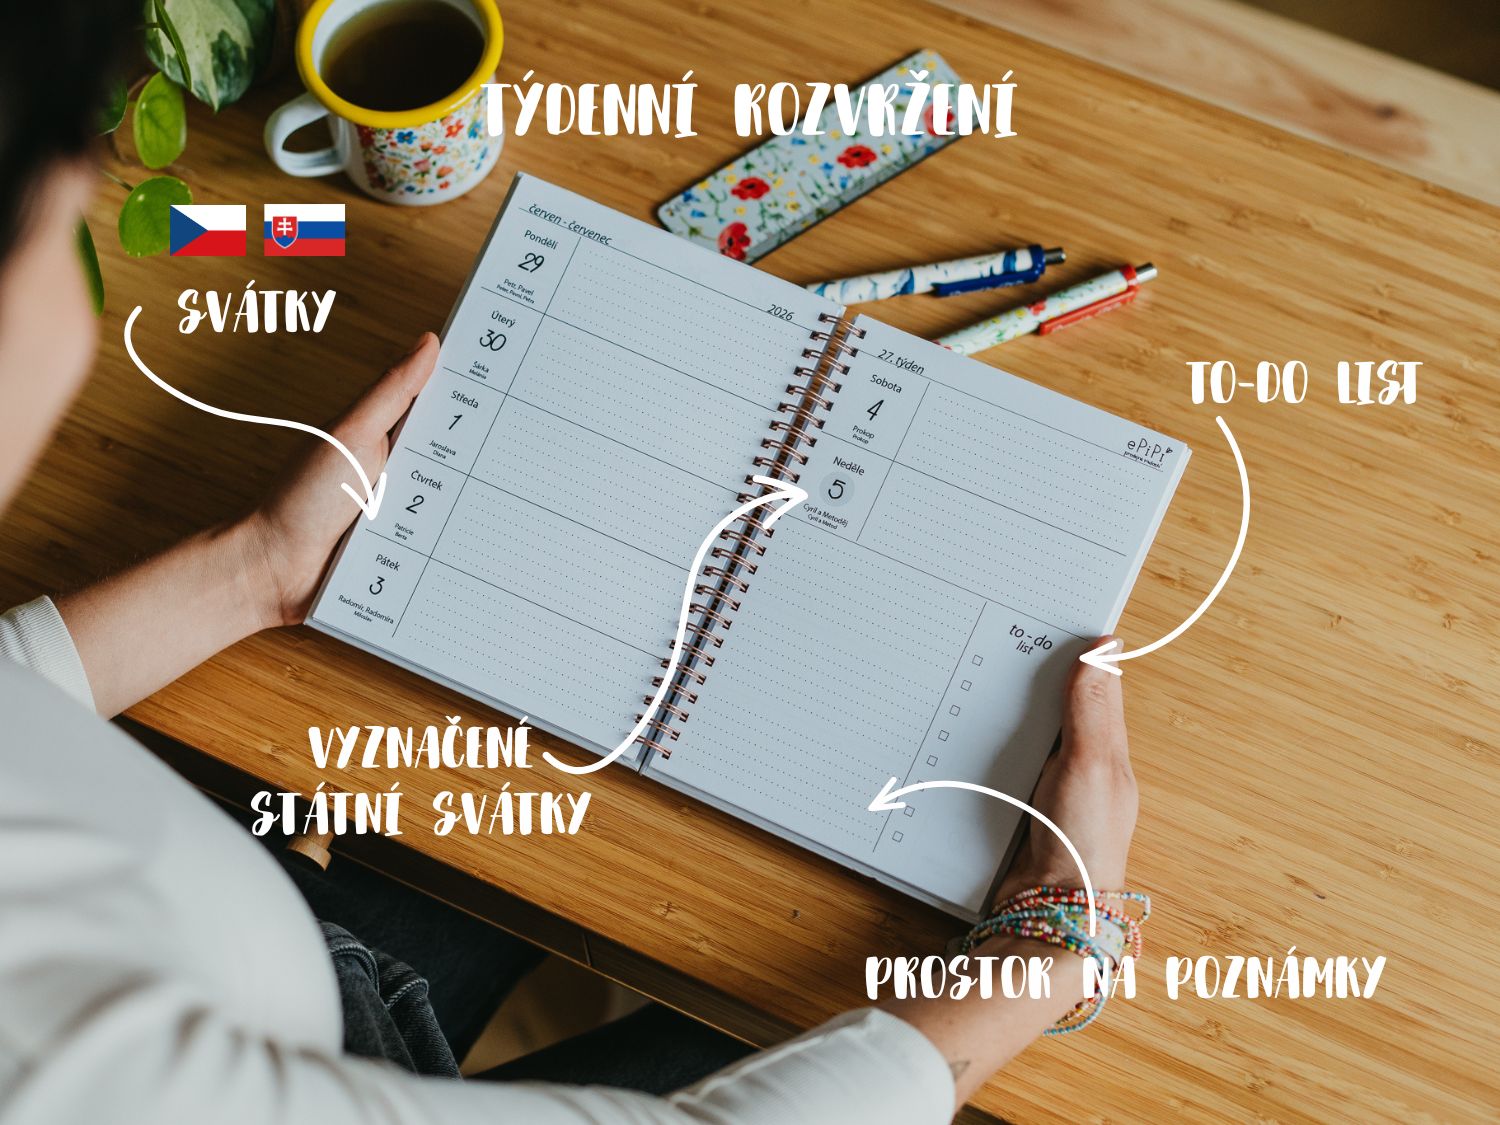 TÝDENNÍ ROZVRŽENÍ
SVÁTKY
TO-DO LIST
VYZNAČENÉ
STÁTNÍ SVÁTKY
PROSTOR NA POZNÁMKY
červen - červenec
2026
Pondělí
29
Petr, Pavel
Peter, Pavol, Petra
Úterý
30
Šárka
Melánia
Středa
1
Jaroslava
Diana
Čtvrtek
2
Patricie
Berta
Pátek
3
Radomír, Radomíra
Miloslav
27. týden
ePiPi
Sobota
4
Prokop
Prokop
Neděle
5
Cyril a Metoděj
Cyril a Metod
to-do
list